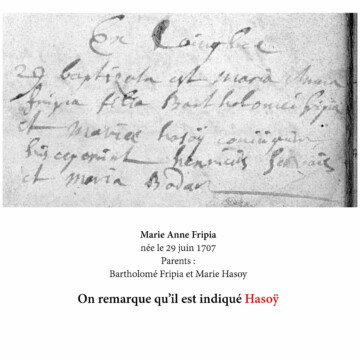 29 baptizata est maria Anna
fripia filia Bartholomei fripia
et mariae hasoÿ coniugum
susceperunt henricus
et maria Bodar
Marie Anne Fripia
née le 29 juin 1707
Parents :
Bartholomé Fripia et Marie Hasoy
On remarque qu'il est indiqué Hasoÿ